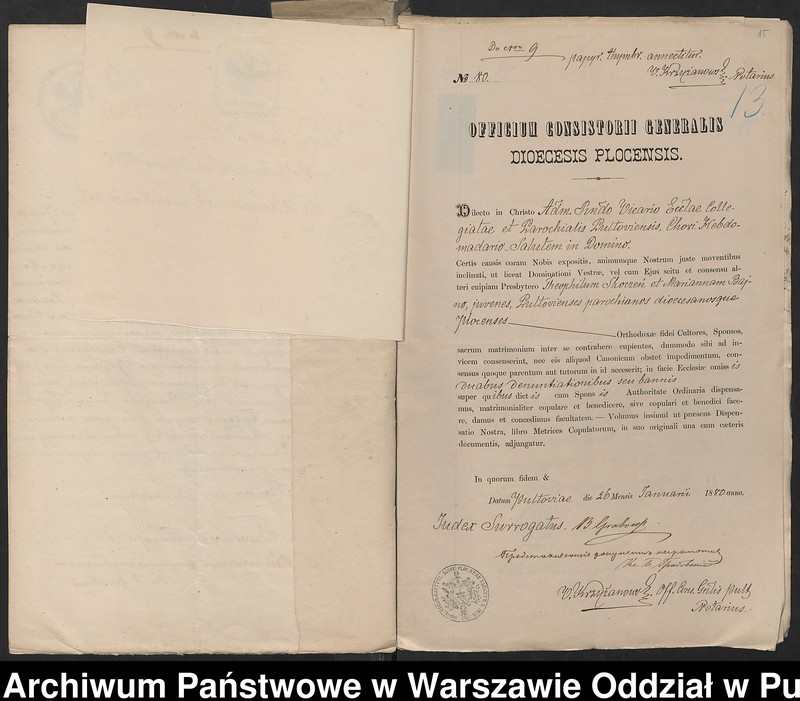 15
Do № 9 papyr. thymbr. annectitur.
V. Krzyżanows Notarius
№ 80.
13
OFFICIUM CONSISTORII GENERALIS
DIOECESIS PLOCENSIS.
Dilecto in Christo Adm. Rndo Vicario Ecclae Colle-
giatae et Parochialis Pultoviensis, Chori Hebdo-
madario. Salutem in Domino.
Certis causis coram Nobis expositis, animumque Nostrum juste moventibus
inclinati, ut liceat Dominationi Vestræ, vel cum Ejus scitu et consensu al-
teri cuipiam Presbytero Theophilum Skorzeń et Mariannam
juvenes, Pultovienses parochianos dioecesanosque
Plocenses
Orthodoxæ fidei Cultores, Sponsos,
sacrum matrimonium inter se contrahere cupientes, dummodo sibi ad in-
vicem consenserint, nec eis aliquod Canonicum obstet impedimentum, con-
sensus quoque parentum aut tutorum in id accesserit; in facie Ecclesiæ omissis
duabus denuntiationibus seu bannis
super quibus dictis cum Sponsis Authoritate Ordinaria dispensa-
mus, matrimonialiter copulare et benedicere, sive copulari et benedici face-
re, damus et concedimus facultatem. — Volumus insimul ut præsens Dispen-
satio Nostra, libro Metrices Copulatorum, in suo originali una cum cæteris
documentis, adjungatur.
In quorum fidem &
Datum Pultoviae die 26 Mensis Ianuarii 1880 anno.
Iudex Surrogatus.
V. Krzyżanows Off. Cons. Gnlis Pult.
Notarius.
Archiwum Państwowe w Warszawie Oddział w Pu